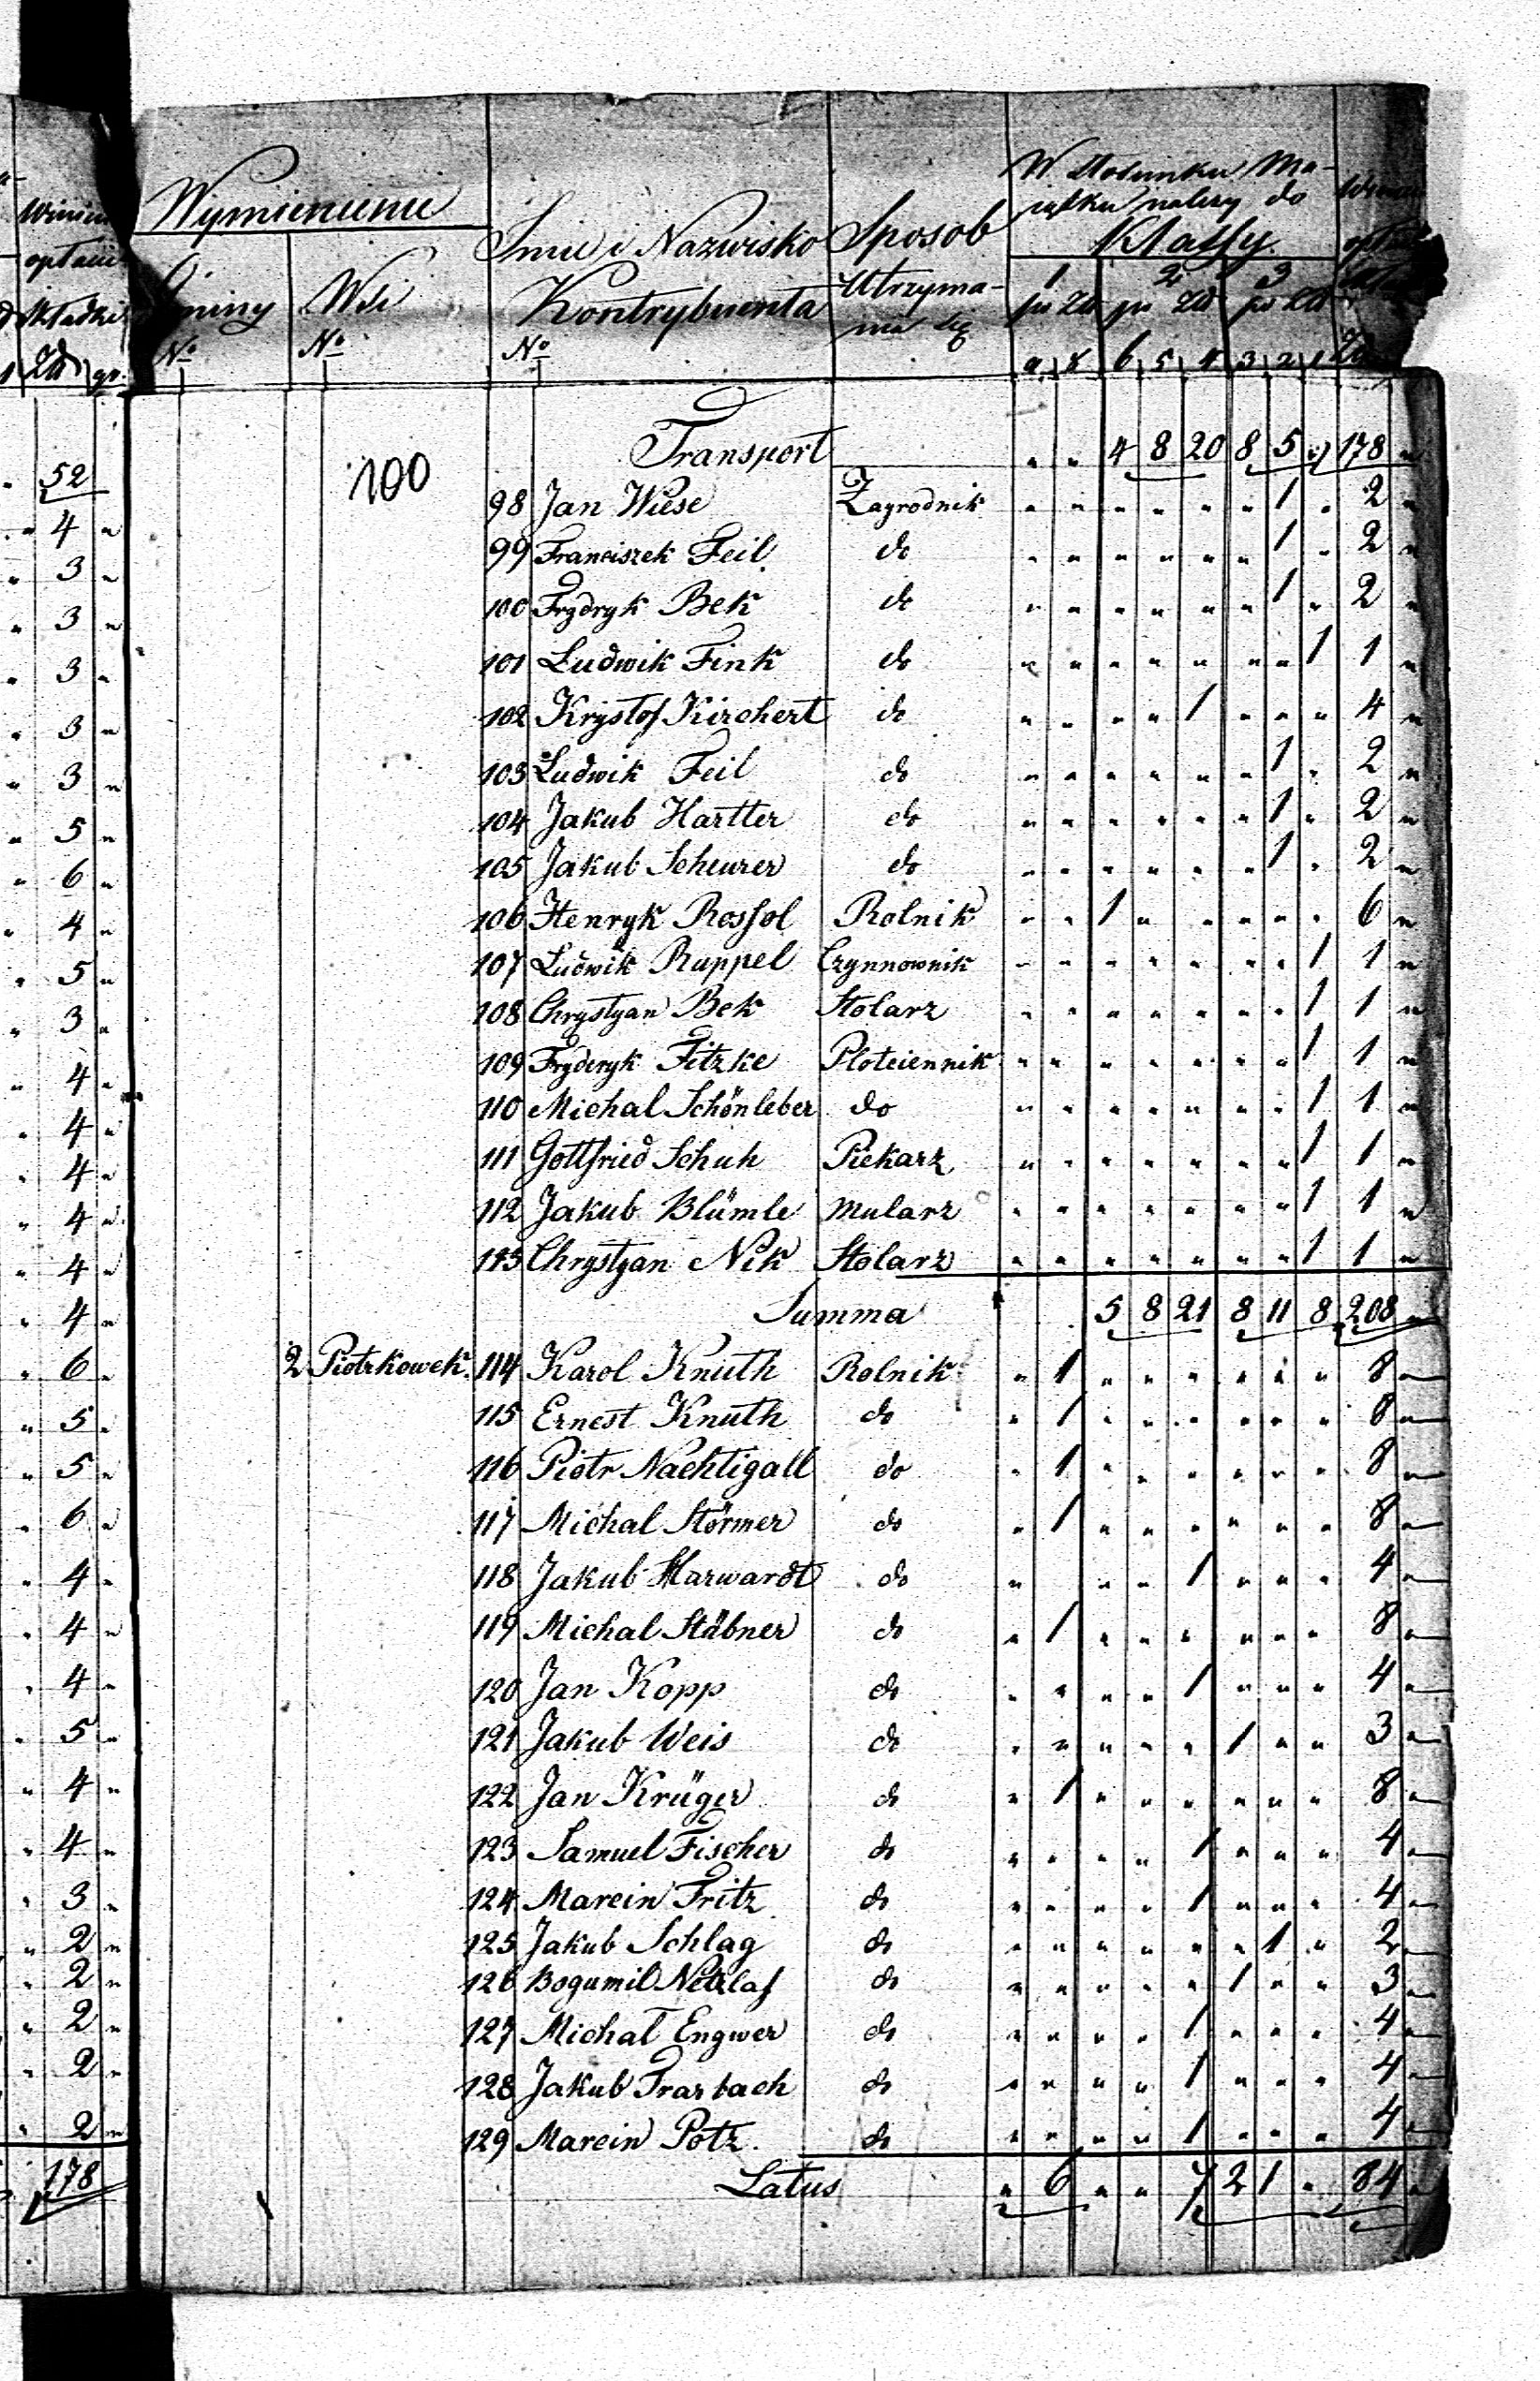 Winien
opłacić
składki
Zł gr.
52
4 "
3 "
3 "
3 "
3 "
3 "
5 "
6 "
4 "
5 "
3 "
4 "
4 "
4 "
4 "
4 "
4 "
6 "
5 "
5 "
6 "
4 "
4 "
4 "
5 "
4 "
4 "
3 "
2 "
2 "
2 "
2 "
2 "
178
Wymienienie
Gminy Wsi
No No
Imie i Nazwisko
Kontrybuenta
No
Sposob
Utrzyma-
nia się
W Stosunku Ma-
iątku należy do
Klassy
1 2 3
po Zł po Zł po Zł
9 8 6 5 4 3 2 1 Zł
100
Transport " " 4 8 20 8 5 " 178 "
98 Jan Wiese Zagrodnik " " " " " " 1 " 2 "
99 Franciszek Feil do " " " " " " 1 " 2 "
100 Frydryk Bek do " " " " " " 1 " 2 "
101 Ludwik Fink do " " " " " " " 1 1 "
102 Krystof Kirchert do " " " " 1 " " " 4 "
103 Ludwik Feil do " " " " " " 1 " 2 "
104 Jakub Hartter do " " " " " " 1 " 2 "
105 Jakub Scheurer do " " " " " " 1 " 2 "
106 Henryk Rossol Rolnik " " 1 " " " " " 6 "
107 Ludwik Ruppel Czynnownik " " " " " " " 1 1 "
108 Chrystyan Bek Stolarz " " " " " " " 1 1 "
109 Fryderyk Fitzke Płoteiennik " " " " " " " 1 1 "
110 Michal Schönleber do " " " " " " " 1 1 "
111 Gottfried Schuh Piekarz " " " " " " " 1 1 "
112 Jakub Blümle Mularz " " " " " " " 1 1 "
113 Chrystyan Nik Stolarz " " " " " " " 1 1 "
Summa 5 8 21 8 11 8 208 "
2 Piotrkowek. 114 Karol Knuth Rolnik " 1 " " " " " " 8 "
115 Ernest Knuth do " 1 " " " " " " 8 "
116 Piotr Nachtigall do " 1 " " " " " " 8 "
117 Michal Störmer do " 1 " " " " " " 8 "
118 Jakub Harwardt do " " " 1 " " " 4 "
119 Michal Stäbner do " 1 " " " " " " 8 "
120 Jan Kopp do " " " " 1 " " " 4 "
121 Jakub Weis do " " " " " 1 " " 3 "
122 Jan Krüger do " 1 " " " " " " 8 "
123 Samuel Fischer do " " " " 1 " " " 4 "
124 Marcin Fritz do " " " " 1 " " " 4 "
125 Jakub Schlag do " " " " " " 1 " 2 "
126 Bogumil Netzlaf do " " " " " 1 " " 3 "
127 Michał Engwer do " " " " 1 " " " 4 "
128 Jakub Trarbach do " " " " 1 " " " 4 "
129 Marcin Potz. do " " " " 1 " " " 4 "
Latus " 6 " " 7 2 1 " 84 "